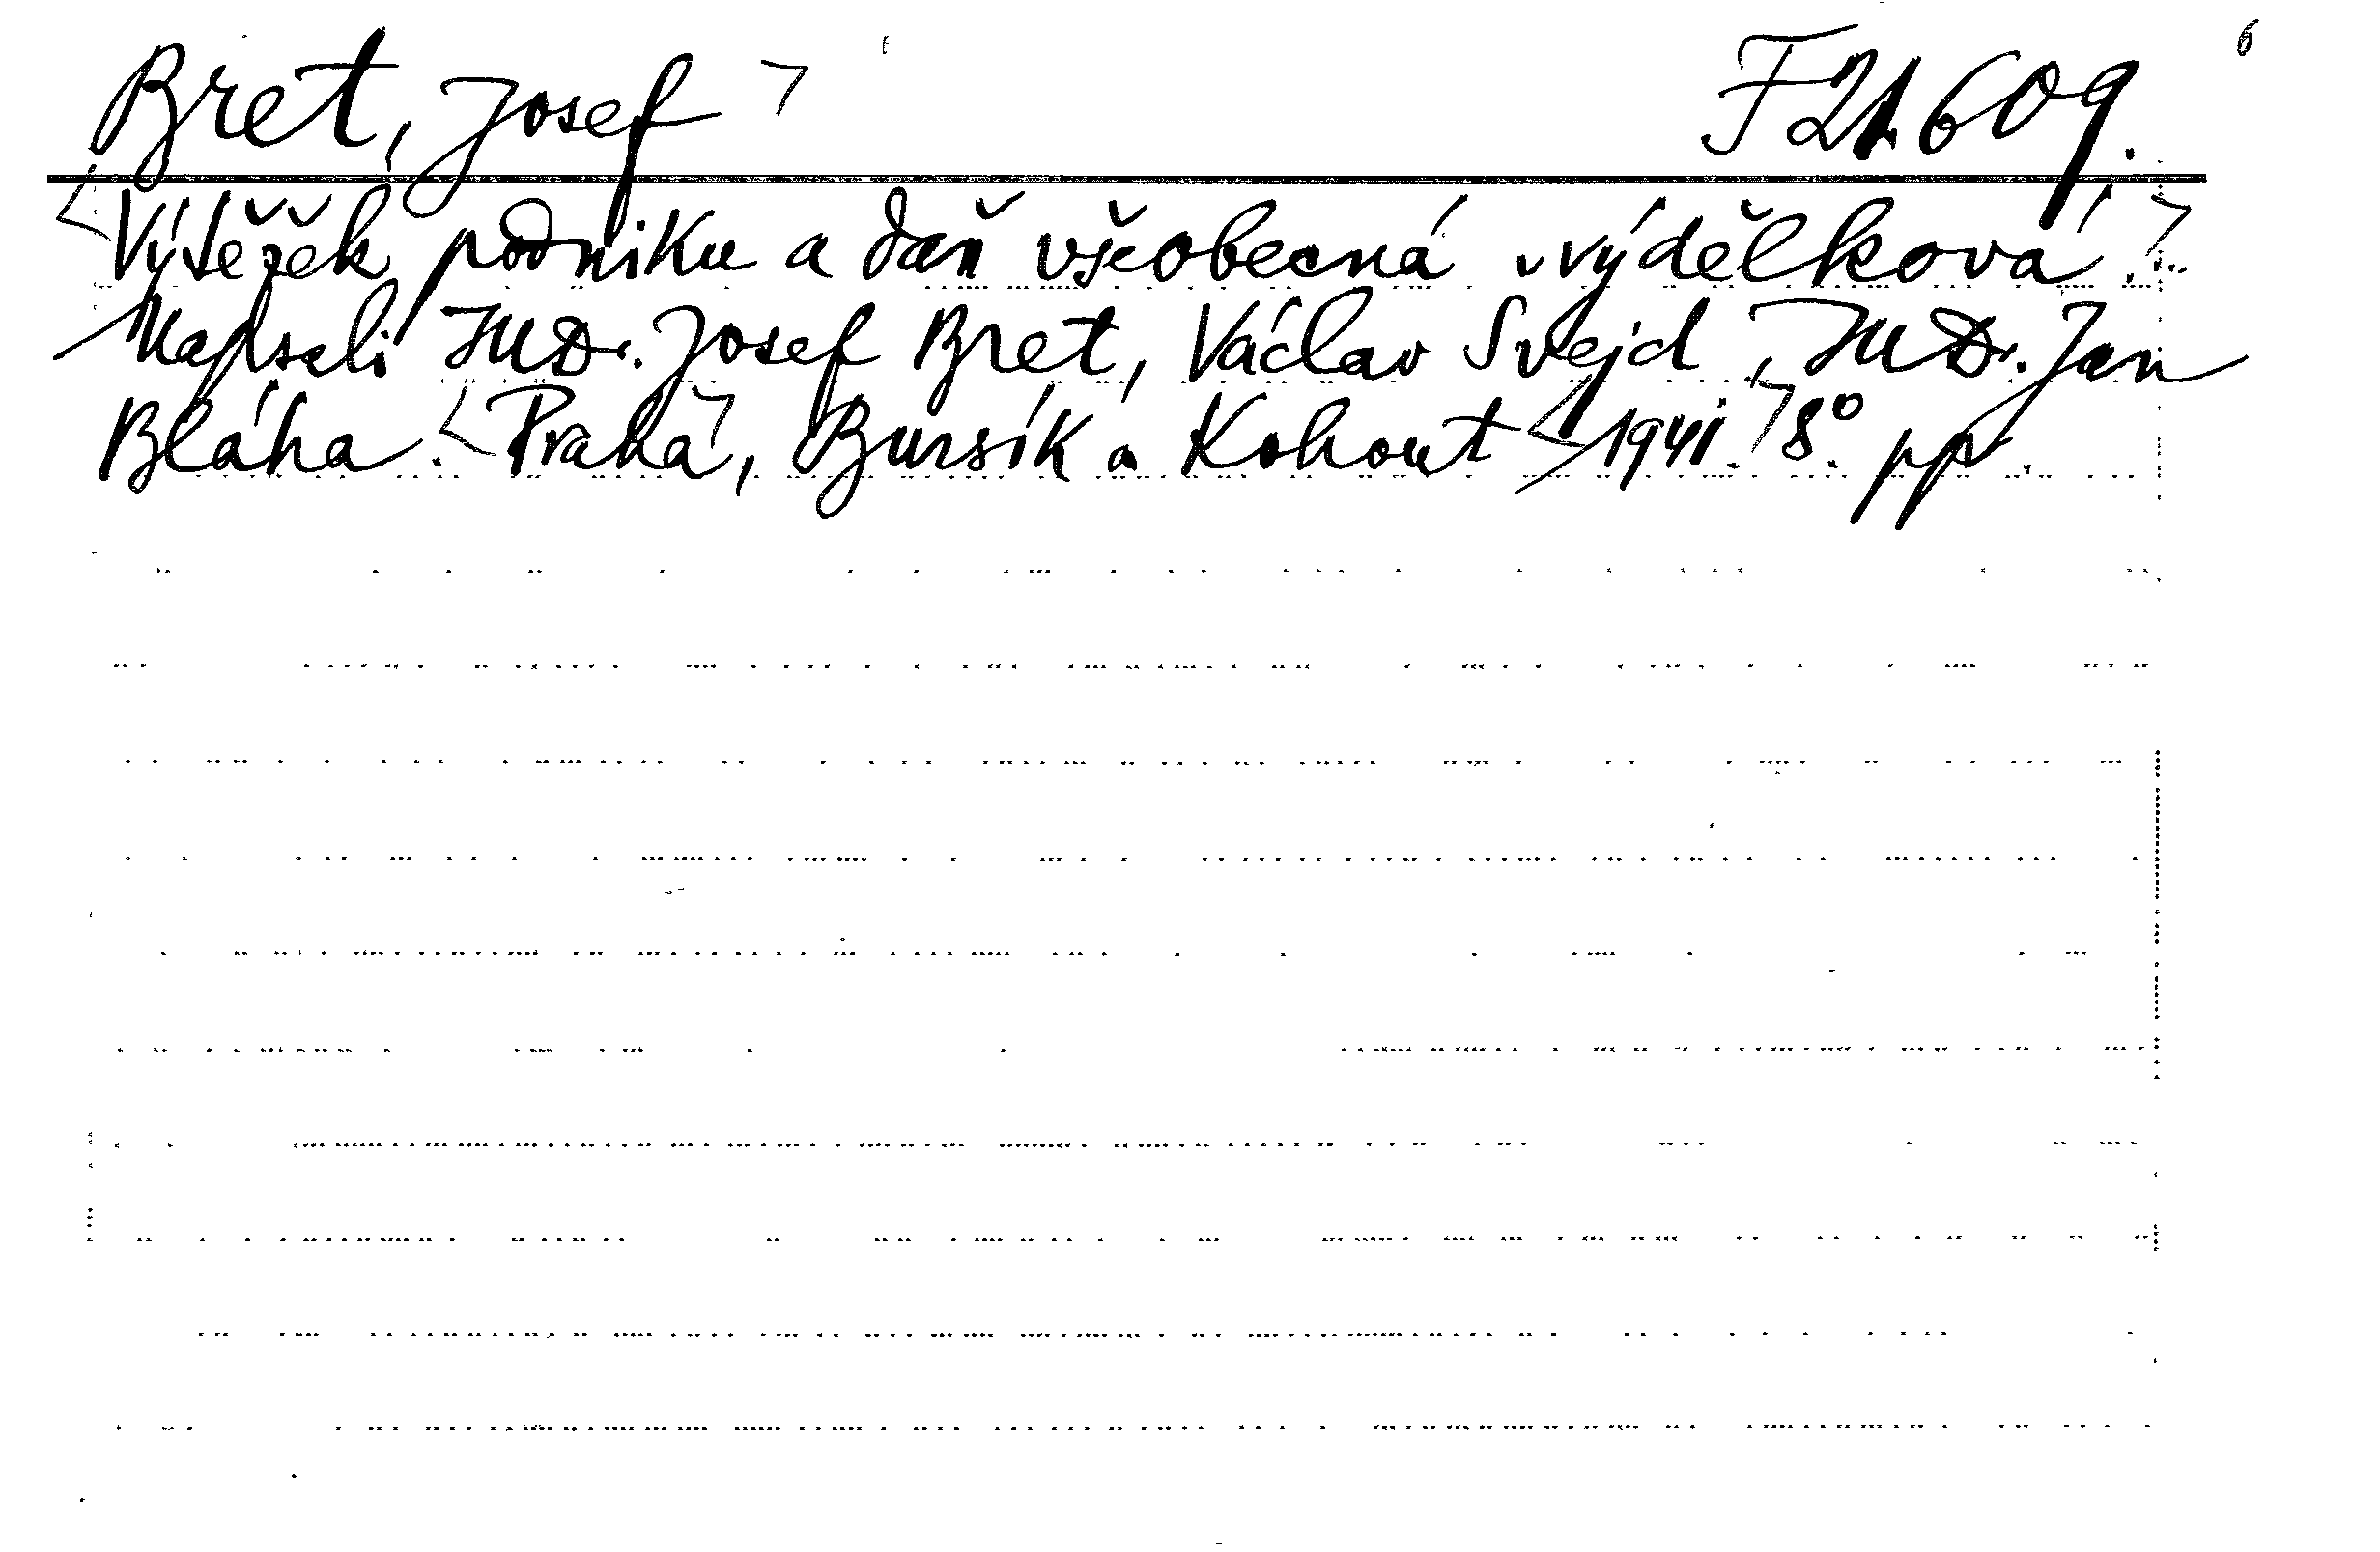 Bret, Josef F 21.609.
Výtěžek podniku a daň všeobecná výdělková.
Napsali JUDr. Josef Bret, Václav Švejd, JUDr. Jan
Bláha. Praha, Bursík a Kohout 1941. 8°. pp.